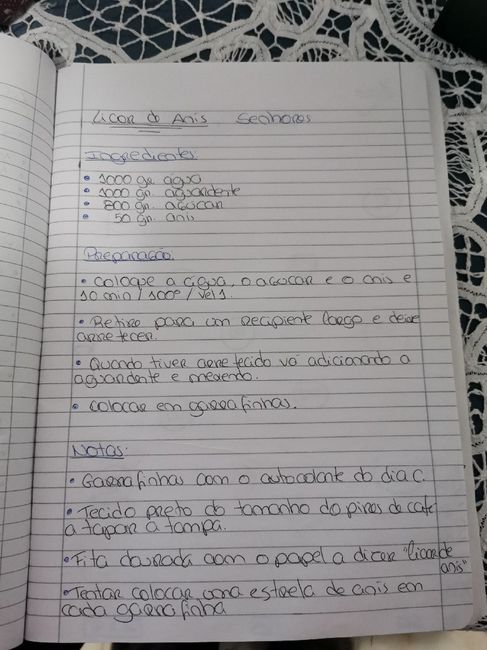 Licor de Anis Senhores
Ingredientes:
• 1000 gr. água
• 1000 gr. aguardente
• 800 gr. açúcar
• 50 gr. anis
Preparação
• Coloque a água, o açucar e o anis e
10 min / 100º / vel 1.
• Retire para um recipiente largo e deixe
arrefecer.
• Quando tiver arrefecido vá adicionando a
aguardente e mexendo.
• Colocar em garrafinhas.
Notas:
• Garrafinhas com o autocolante do dia C.
• Tecido preto do tamanho do pires de café
a tapar a tampa.
• Fita dourada com o papel a dizer "licor de
anis"
• Tentar colocar uma estrela de anis em
cada garrafinha